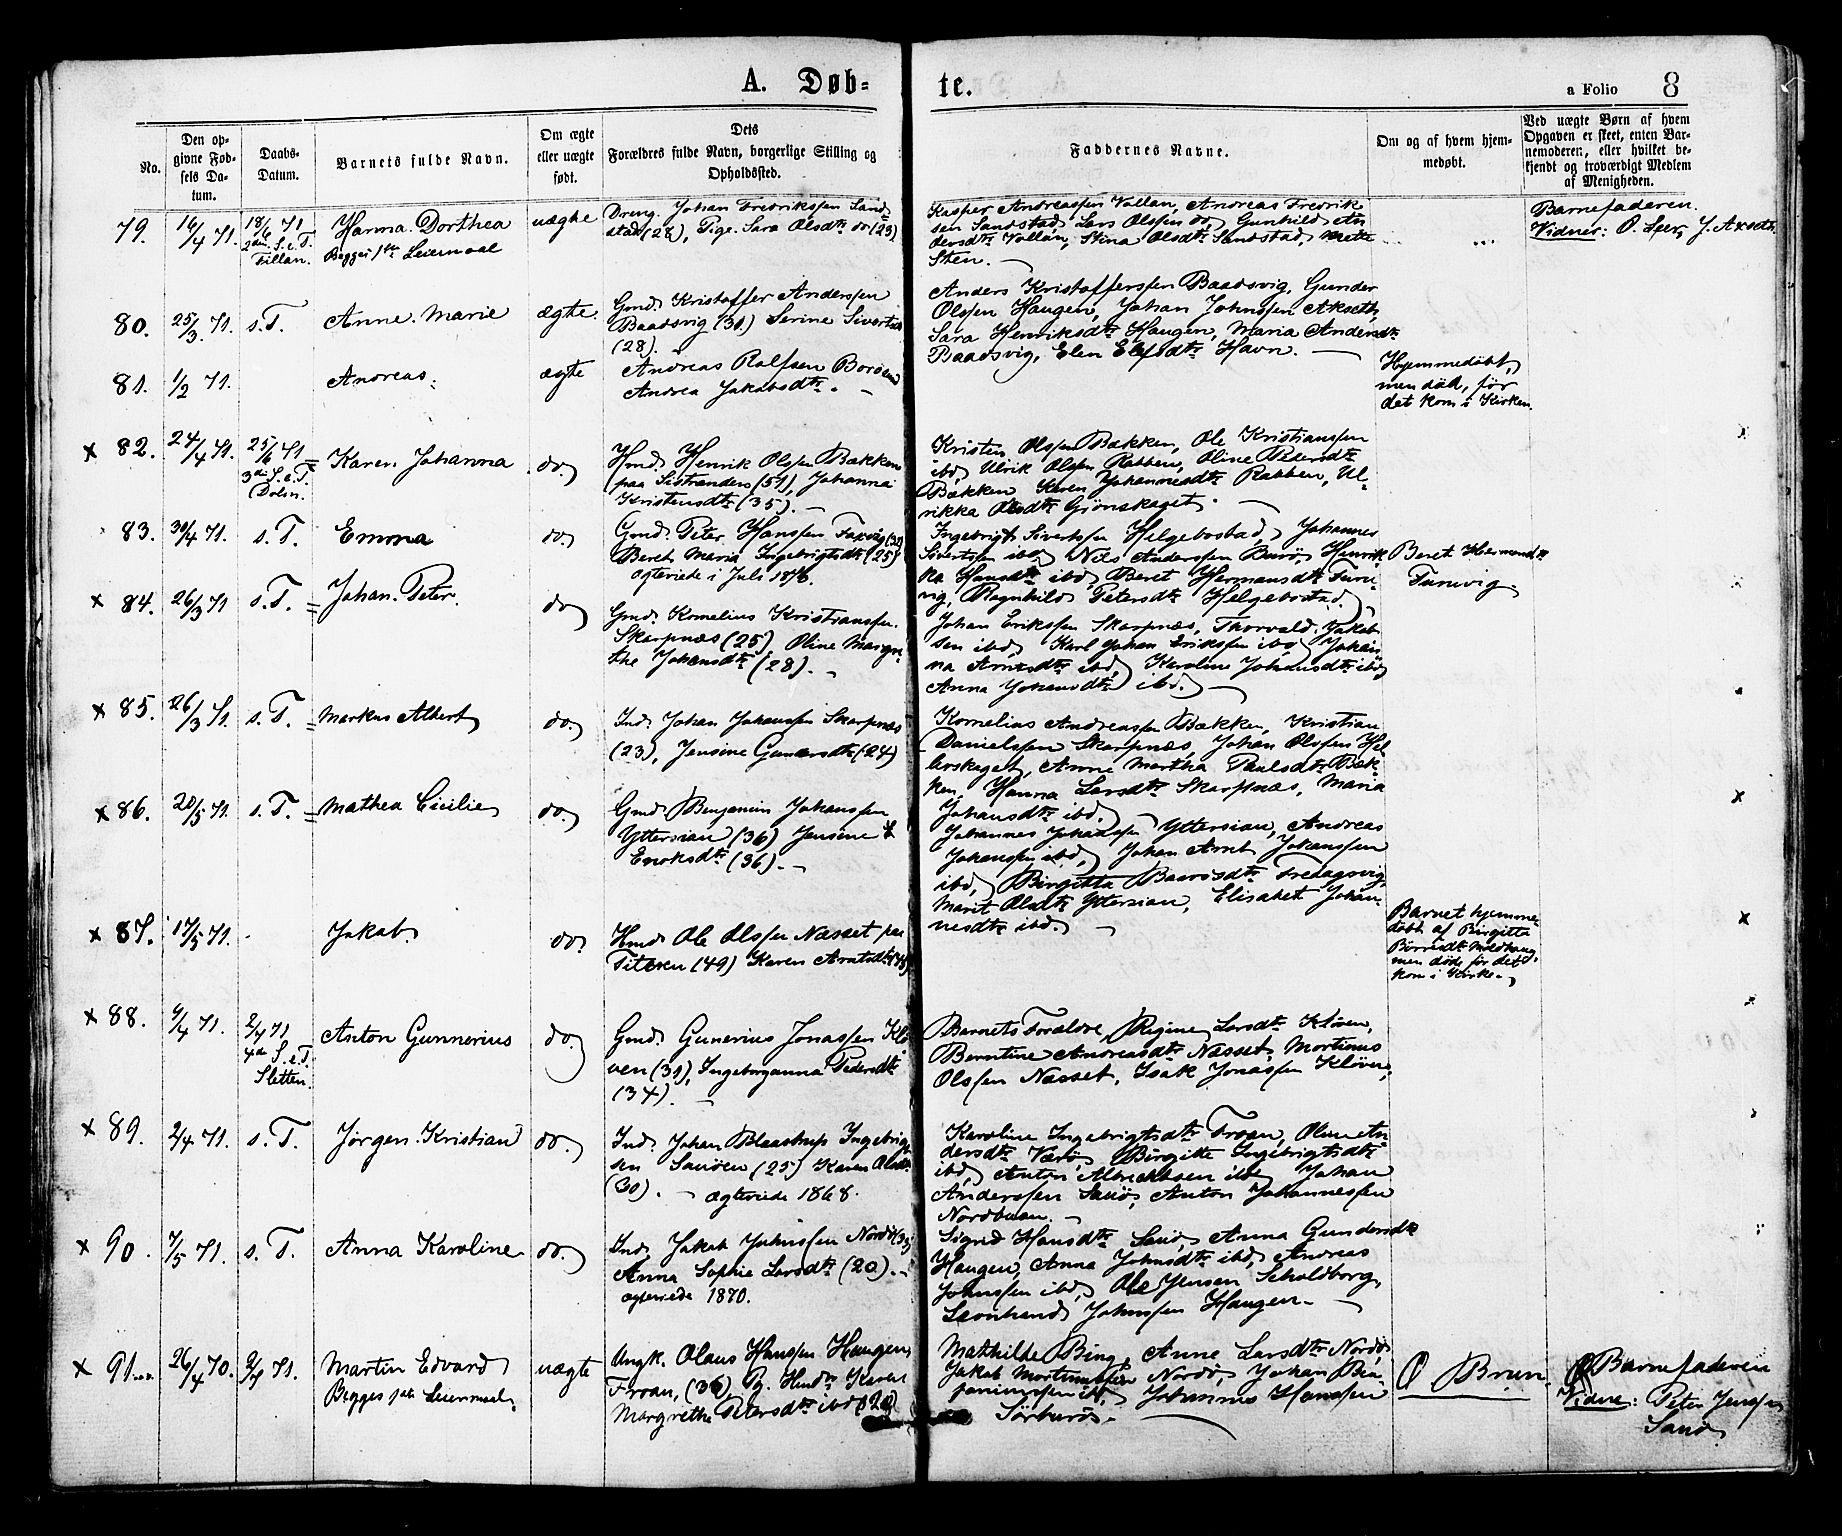 A. Døb-
te.
a Folio 8
No.
Den op-
givne Fød-
sels Da-
tum.
Daabs-
Datum.
Barnets fulde Navn.
Om ægte
eller uægte
født.
Dets
Forældres fulde Navn, borgerlige Stilling og
Opholdssted.
Faddernes Navne.
Om og af hvem hjem-
medøbt.
Ved uægte Børn af hvem
Opgaven er skeet, enten Bar-
nemoderen, eller hvilket be-
kjendt og troværdigt Medlem
af Menigheden.
79. 16/4 71. 18/6 71
2den S. e. T.
Fillan.
Hanna Dorthea
Begges 1ste Leiermaal
uægte
Dreng. Johan Fredrikssen Sand-
stad (28), Pige. Sara Olsdtr do (23)
Kasper Andreassen Vollan, Andreas Fredrik-
sen Sandstad, Lars Olssen do, Gunhild An-
dersdtr Vollan, Stina Olsdtr Sandstad, Mette
Sten. —
Barnefaderen.
Vidner: O. Seer, J. Axseth.
80. 25/3 71. s. T. Anne Marie ægte.
Gmd. Kristoffer Anderssen
Baadsvig (31) Serine Sivertsdtr
(28).
Anders Kristofferssen Baadsvig, Gunder
Olssen Haugen, Johan Johnssen Akseth,
Sara Henriksdtr Haugen, Maria Andersdtr
Baadsvig, Elen Elefsdtr Havn. —
81. 1/2 71. Andreas. ægte
Andreas Rolfsen Bordem
Andrea Jakobsdtr. —
Hjemmedøbt,
men død, før
det kom i Kirken.
x 82. 24/4 71. 25/6 71
3die S. e. T.
Dolm.
Karen Johanna do
Hmd. Henrik Olssen Bækken
paa Sistranden (51), Johanna
Kristensdtr (35). —
Kristen Olssen Bækken, Ole Kristianssen
ibd, Ulrik Olssen Rabben, Oline Pedersdtr
Bækken Karen Johannesdtr Rabben, Ul-
rikka Olsdtr Gjønskaget. —
83. 30/4 71. s. T. Emma do
Gmd. Peter Hanssen Faxvåg (32)
Beret Maria Ingebrigtsdtr (25)
ægteviede i Juli 1870.
Ingebrigt Sivertsen Helgebostad, Johannes
Sivertsen ibd, Nils Anderssen Burø, Henrik-
ka Hansdtr ibd, Beret Hermansdtr Furu-
vig, Ragnhild Petersdtr Helgebostad.
Beret Hermansdtr
Furuvig
x 84. 26/3 71 s. T. Johan Peter. do
Gmd. Kornelius Kristianssen
Skarpnæs (25), Oline Margre-
the Johansdtr (28). —
Johan Erikssen Skarpnæs, Thorvald Jakob-
sen ibd, Karl Johan Erikssen ibd, Johan-
na Arnesdtr ibd, Karoline Johansdtr ibd,
Anna Johansdtr ibd. —
x 85. 26/3 71. s. T. Markus Albert do
Ind. Johan Johanssen Skarpnæs
(23), Jensine Gundersdtr (24)
Kornelius Andreassen Bækken, Kristian
Danielssen Skarpnæs, Johan Olssen Hel-
lerskaget, Anne Martha Paulsdtr Bæk-
ken, Hanna Larsdtr Skarpnæs, Maria
Johansdtr ibd. —
x 86. 20/5 71. s. T. Mathea Cecilie do.
Gmd. Benjamin Johanssen
Yttersian (36) Jensine
Enoksdtr (36). —
Johannes Johanssen Yttersian, Andreas
Johanssen ibd, Johan Arnt Johanssen
ibd, Birgitta Baarsdtr Fredagsvig,
Marit Olsdtr Yttersian, Elisabet Johan-
nesdtr ibd. —
x 87. 17/5 71. Jakob. do.
Hmd. Ole Olssen Næsset paa
Titeren (49) Karen Arntsdtr (44)
Barnet hjemme-
døbt af Birgitta
Børresdtr Moldhaug
men døde før det
kom i Kirke. —
x 88. 9/4 71. 2/7 71
4de S. e. T.
Sletten.
Anton Gunnerius do.
Gmd. Gunerius Jonassen Klø-
ven (31), Ingeborganna Pedersdtr
(34). —
Barnets Forældre, Regine Larsdtr Kløven,
Berntine Andreasdtr Næsset, Mortinus
Olssen Næsset, Isak Jonassen Kløven,
x 89. 2/4 71. s. T. Jørgen Kristian do.
Ind. Johan Blaastrup Ingebrigt-
sen Sanden (25) Karen Olsdtr
(30). — ægteviede 1868.
Karoline Ingebrigtsdtr Froan, Oline An-
dersdtr Værø, Birgitte Ingebrigtsdtr
ibd, Anton Albrechtsen ibd, Johan
Anderssen Sauø, Anton Johannessen
Nordbuan. —
x 90. 7/5 71. s. T. Anna Karoline do.
Ind. Jakob Johnssen Nordø (33)
Anna Sophie Larsdtr (20). —
ægteviede 1870.
Sigrid Hansdtr Sauø, Anna Gundersdtr
Haugen, Anna Johnsdtr ibd, Andreas
Johnssen ibd, Ole Jensen Scholdborg,
Leonhard Johnssen Haugen. —
x 91. 26/4 70. 2/7 71.
Martin Edvard
Begges 1ste Leiermaal.
uægte
Ungk. Olaus Hanssen Haugen,
Froan, (36), Pg. Karen
Margrethe Petersdtr ibd (20)
Mathilde Bing, Anne Larsdtr Nordø,
Jakob Mortinussen Nordø, Johan Ben-
jaminssen ibd, Johannes Hanssen
Sørburø. —
O Brun.
Barnefaderen
Vidne: Peter Jenssen
Sand